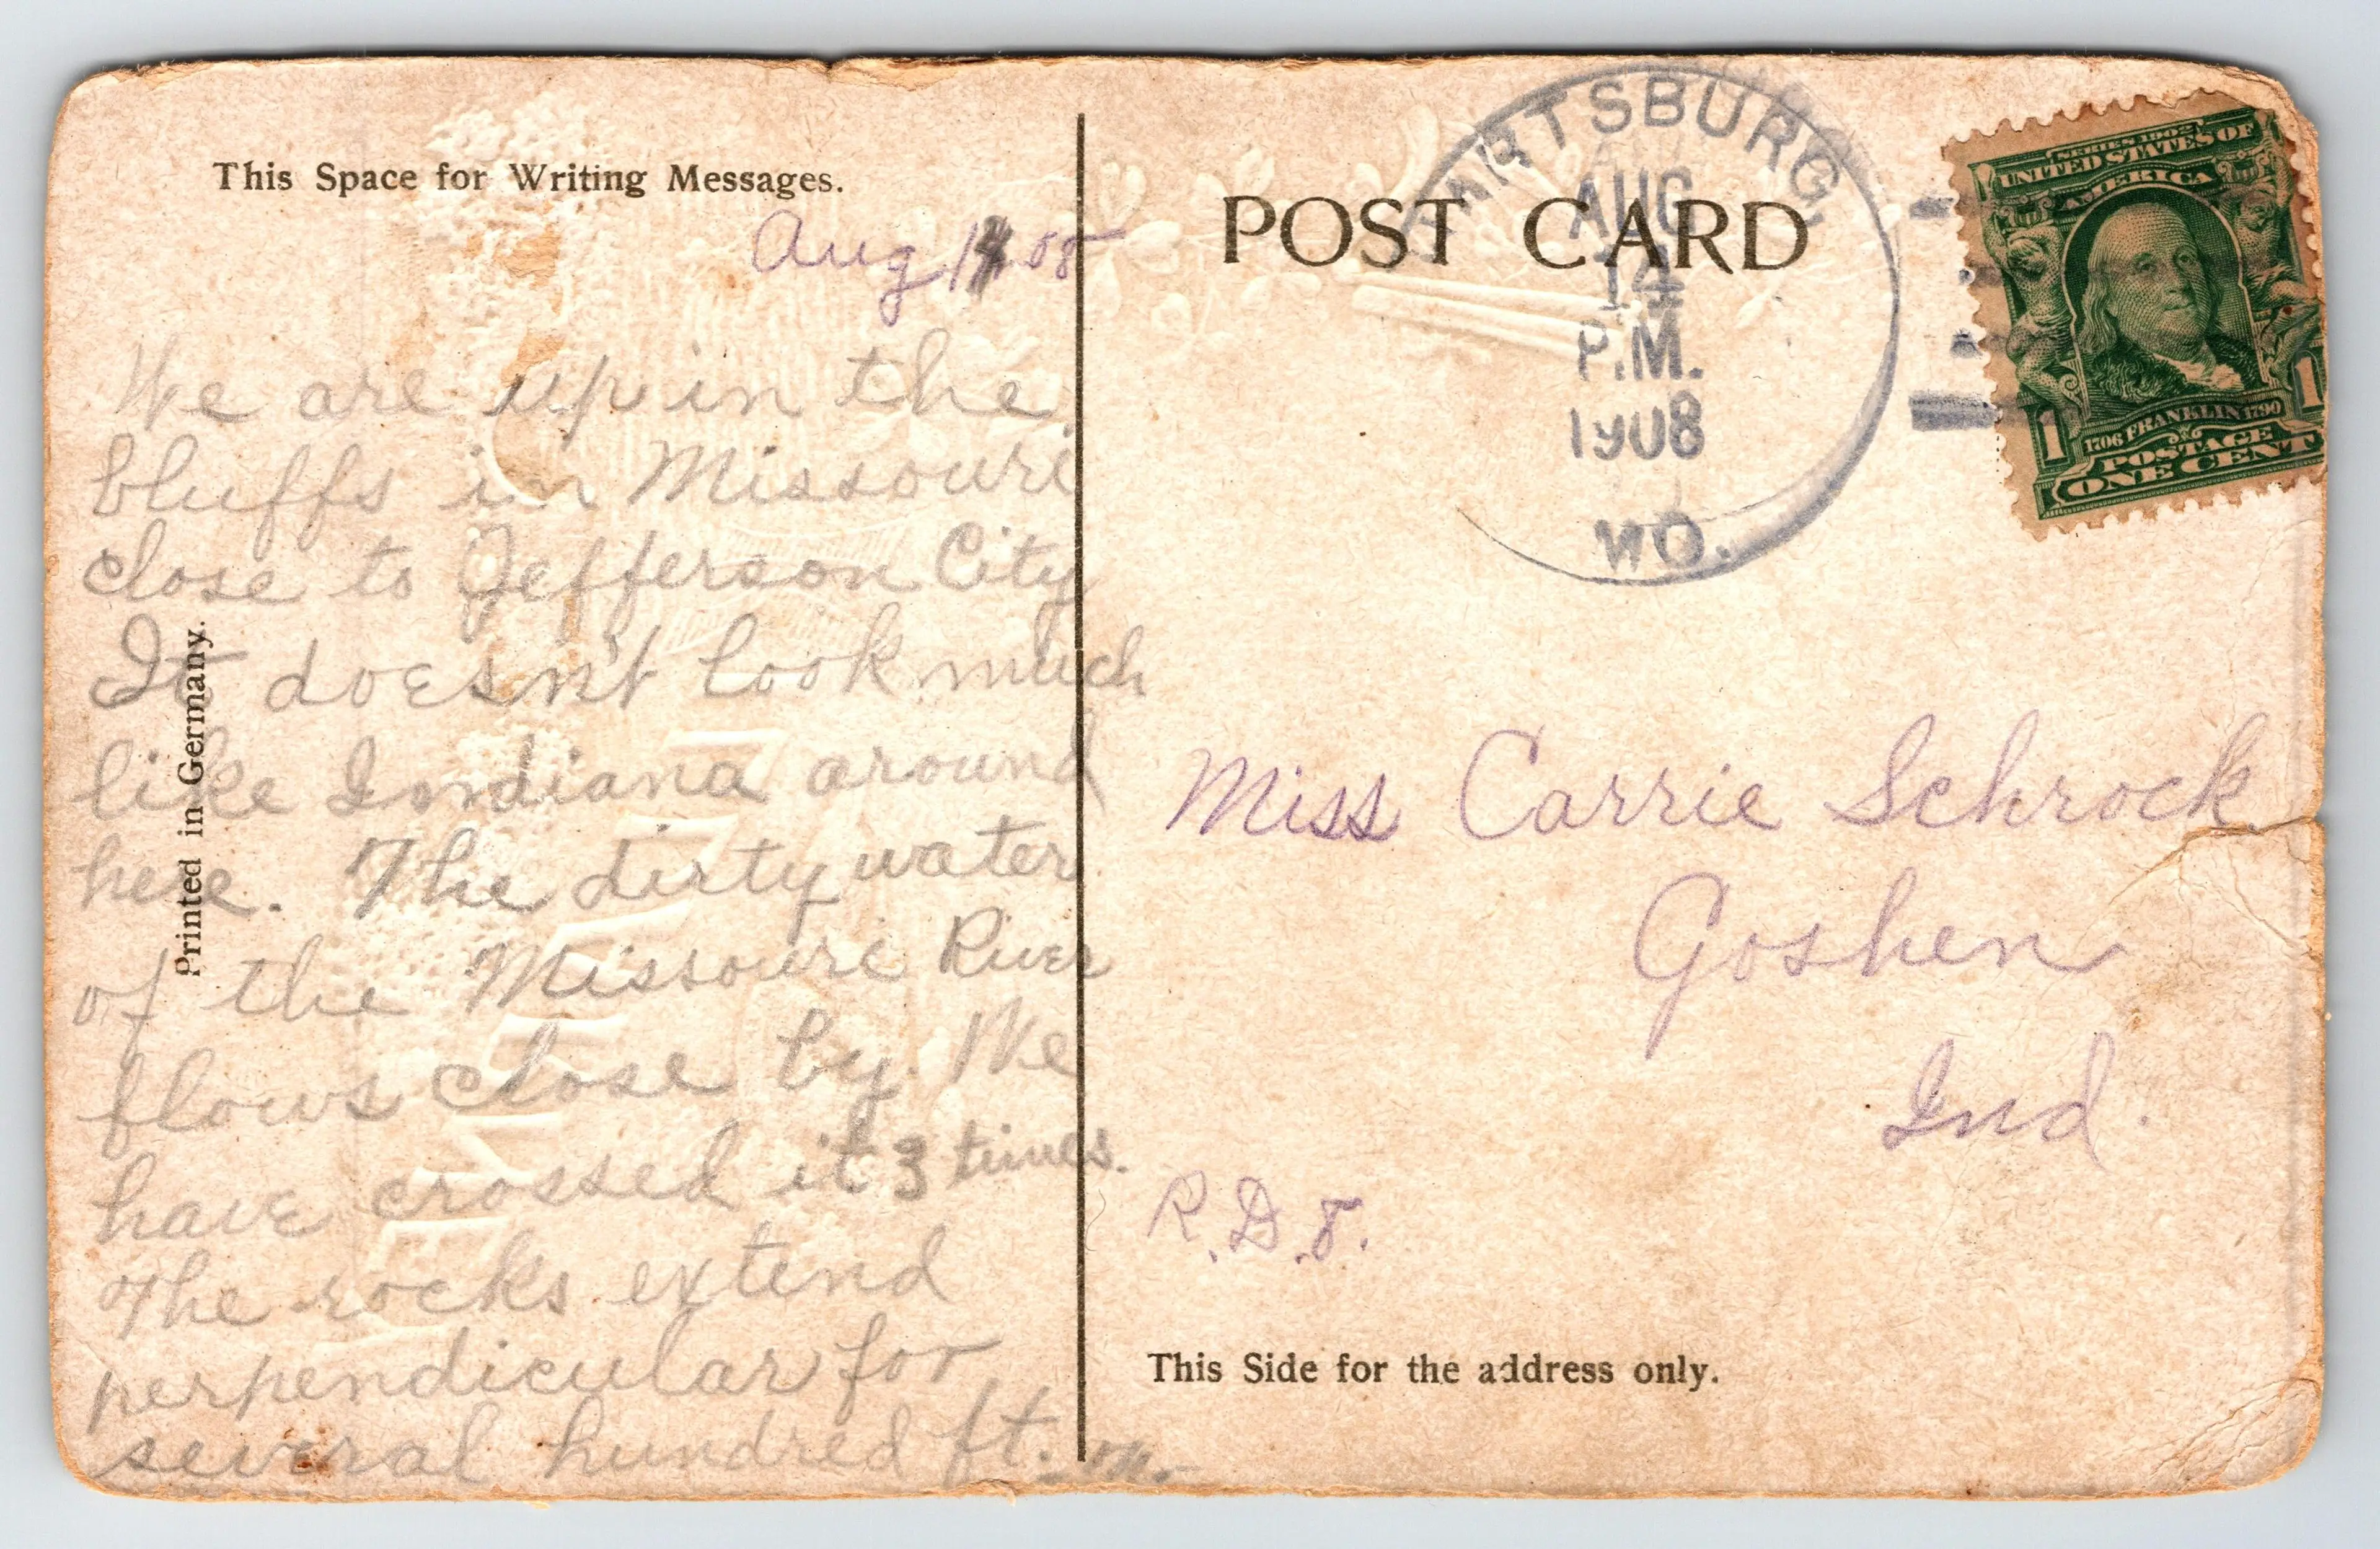 This Space for Writing Messages.
Aug 14 08
We are up in the
bluffs in Missouri
close to Jefferson City
It doesn't look much
like Indiana around
here. The dirty water
of the Missouri River
flows close by. We
have crossed it 3 times.
The rocks extend
perpendicular for
several hundred ft.
Printed in Germany.
POST CARD
HARTSBURG,
AUG
14
P.M.
1908
MO.
SERIES 1902
UNITED STATES OF
AMERICA
1 1
1706 FRANKLIN 1790
POSTAGE
ONE CENT
Miss Carrie Schrock
Goshen
Ind.
R.D. 8.
This Side for the address only.